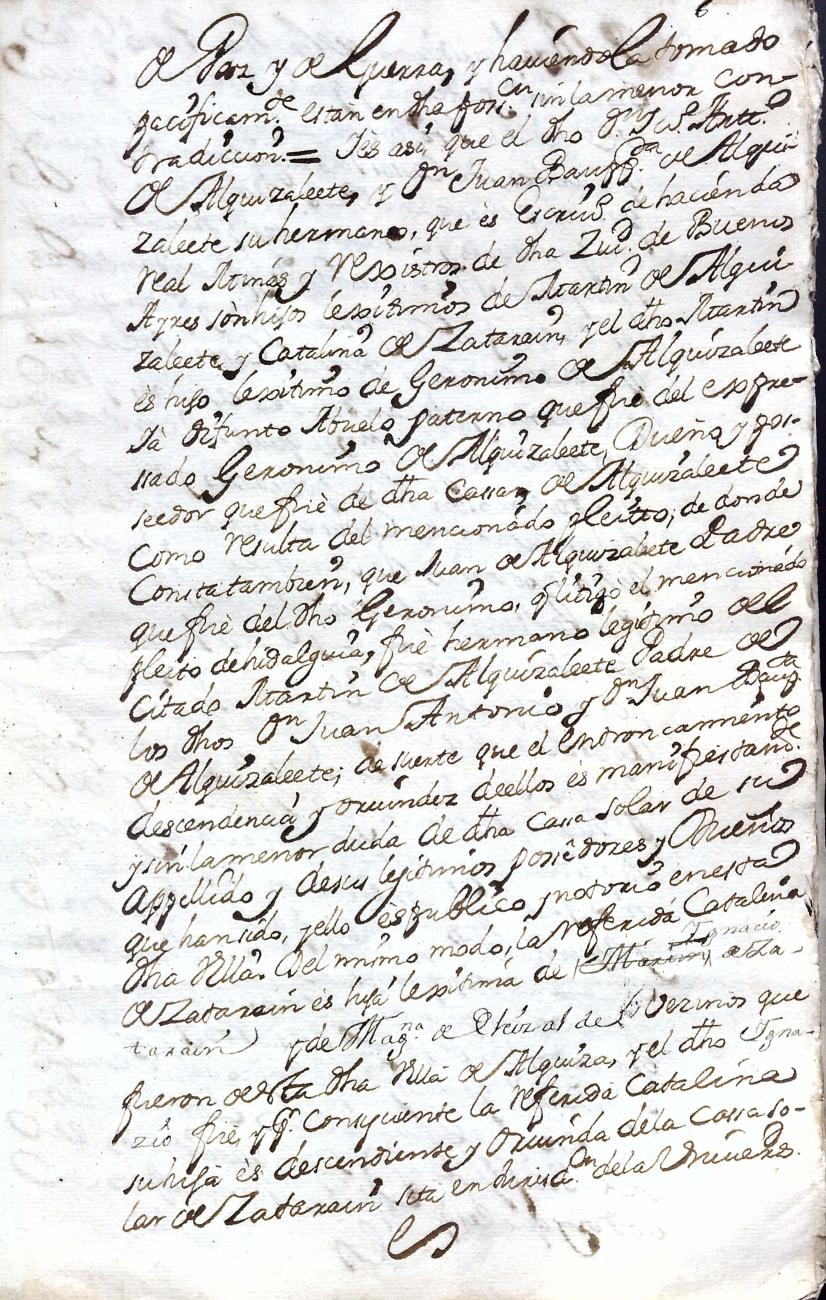 de Paz y de Guerra, y haviendola tomado
pacificam.te estan en dha pos.on sin la menor con-
tradiccion = Y es asi que el dho d.n Ju.o Ant.o
de Alquizaleete, y d.n Juan Baup.ta de Alqui-
zaleete su hermano, que ès Escriv.o de hacienda
real Minas y Rexistros de dha Ziu.d de Buenos
Ayres sòn hijos lexitimos de Martin de Alqui-
zaleete, y Catalina de Zatarain, y el dho Martin
ès hijo lexitimo de Geronimo de Alquizaleete
Yà difunto Abuelo paterno que fuè del expre-
ssado Geronimo de Alquizaleete, Dueño y pos-
seedor que fuè de dha Cassa de Alquizaleete
Como resulta del mencionado pleito, de donde
Consta tambien, que Juan de Alquizalete Padre
que fuè del dho Geronimo, q litigò el mencionado
pleito de hidalguia, fuè hermano legitimo del
Citado Martin de Alquizaleete Padre de
los dhos d.n Juan Antonio y d.n Juan Baup.ta
de Alquizaleete; de suerte que el entroncamiento
descendencia y oriundez de ellos ès manifiesta
y sin la menor duda de dha Cassa solar de su
Appellido y de sus legitimos posseedores y Dueños
que han sido, y ello ès publico y notorio en esta
dha Villa. Del mismo modo, la referida Catalina
Ignacio
de Zatarain ès hija lexitima de Martin de Za-
tarain y de Mag.na de vezinos que
fueron de esta dha Villa de Alquiza, y el dho Igna-
zio fuè, y p.r Consiguiente la referida Catalina
su hija ès descendiente y Oriunda de la Cassa so-
lar de Zatarain sita en dha de la Univers.